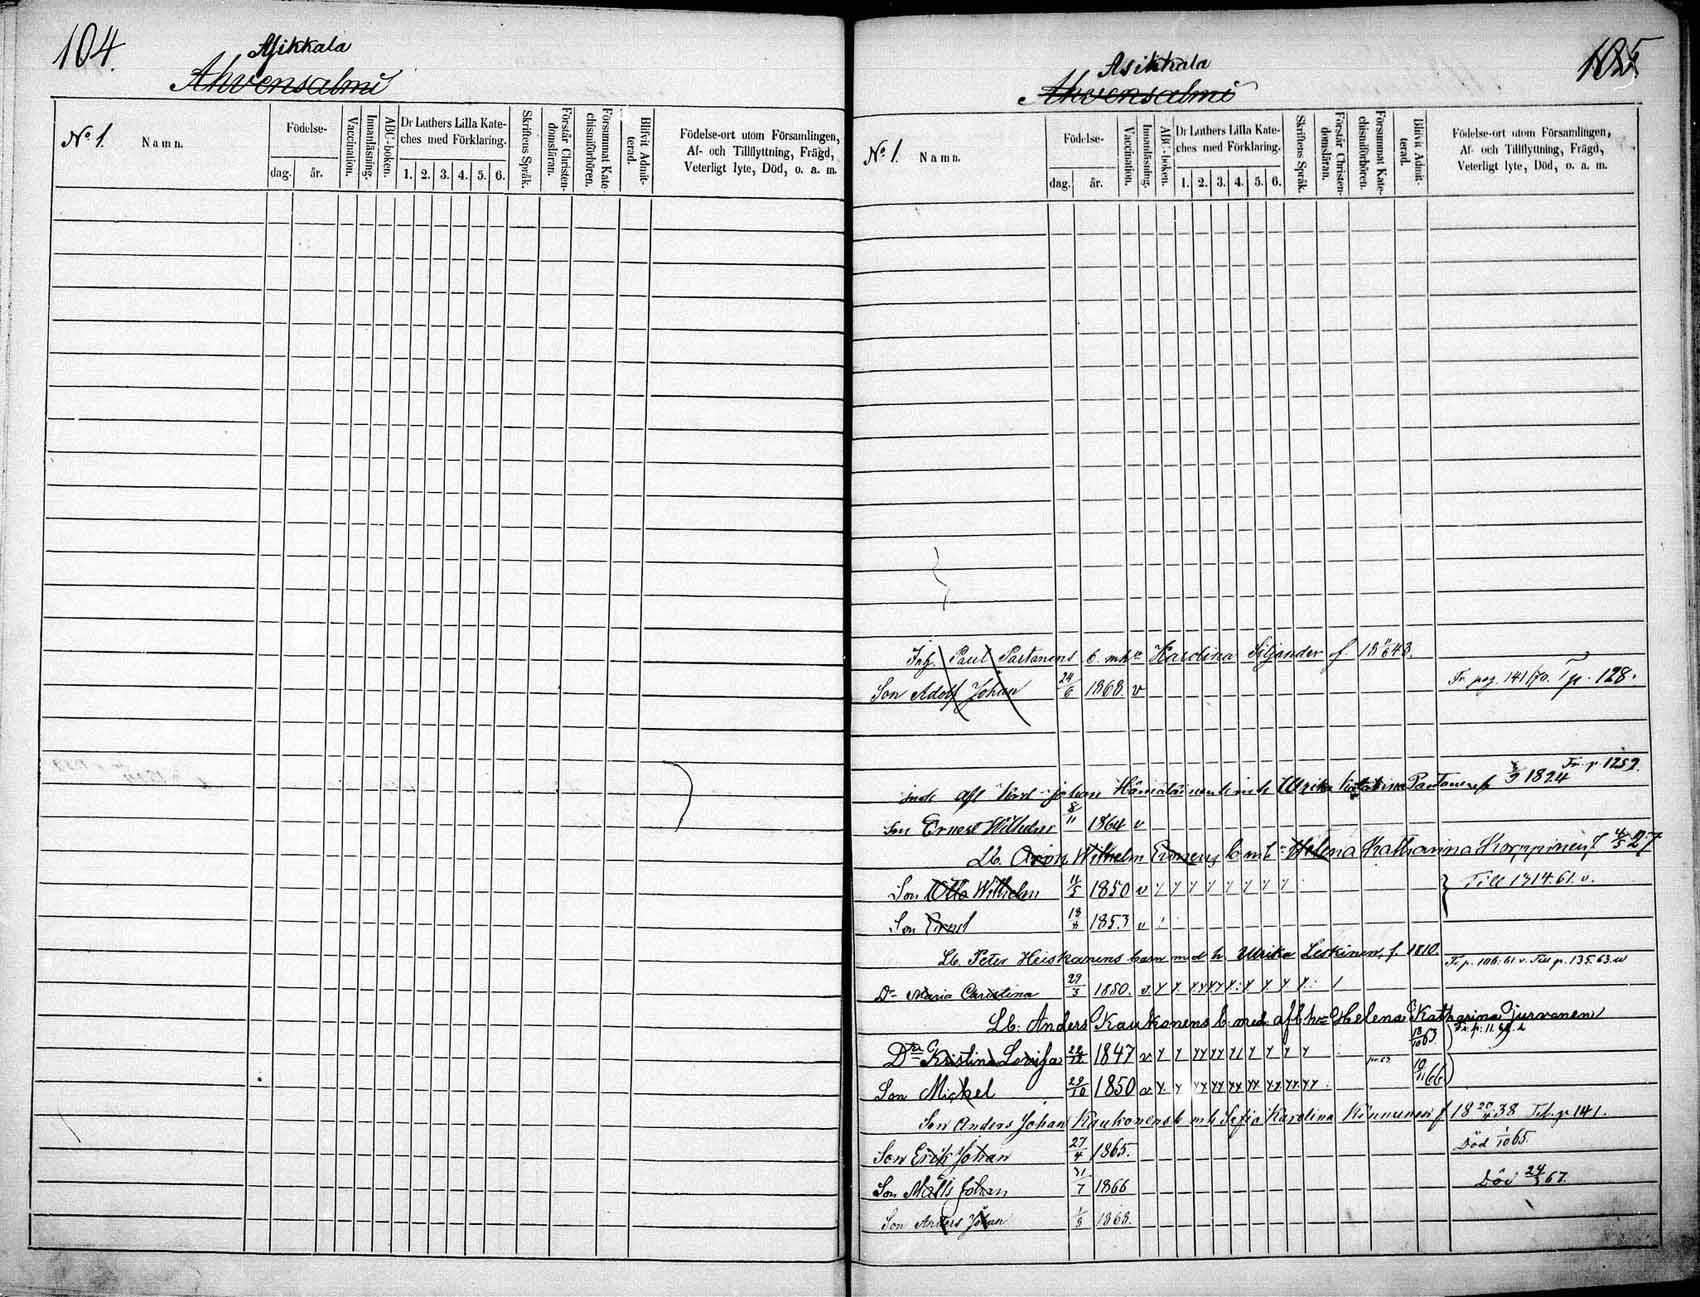 104.
Asikkala
Ahvensalmi
No 1.
Namn.
Födelse-
dag.
år.
Vaccination.
Innanläsning.
ABC-boken.
Dr Luthers Lilla Kate-
ches med Förklaring.
1. 2. 3. 4. 5. 6.
Skriftens Språk.
Förstår Christen-
domsläran.
Försummat Kate-
chismiförhören.
Blifvit Admit-
terad.
Födelse-ort utom Församlingen,
Af- och Tillflyttning, Frägd,
Veterligt lyte, Död, o. a. m.
105
Asikkala
Ahvensalmi
No 1.
Namn.
Födelse-
dag.
år.
Vaccination.
Innanläsning.
ABC-boken.
Dr Luthers Lilla Kate-
ches med Förklaring.
1. 2. 3. 4. 5. 6.
Skriftens Språk.
Förstår Christen-
domsläran.
Försummat Kate-
chismiförhören.
Blifvit Admit-
terad.
Födelse-ort utom Församlingen,
Af- och Tillflyttning, Frägd,
Veterligt lyte, Död, o. a. m.
Inh. Paul Partanens b. m. h. Karolina Siljander f. 18 11/6 43.
Son Adolf Johan 24/6 1868. v Fr. pag. 141/70. T p. 128.
Fr. p. 1252.
Inh. afl. Johan Ulrika Partanen f. 1824
Son Ernest Wilhelm 8/11 1864 v
Lb. Aron Wilhelm b m h Helena Katharina Korppinen f. 4/5 27
Son Otto Wilhelm 11/5 1850 v Till 1314. 61. v.
Son Ernst 18/8 1853 v
Lb. Peter Heiskanens barn med h. Ulrika Leskinen, f. 1810.
Dr Maria Christina 29/3 1850. v. Fr. p. 106. 61. v. Till p. 135. 63. v
Lb. Anders Kaukonens b. med afl. h. Helena Katharina Turvanen
Dr Kristina Lovisa 1847 v 63
Son Mickel 29/10 1850 v 66
Son Anders Johan Kaukonens b m h Sofia Karolina Kinnunen f 18 38 Till p 141.
Son Erik Johan 27/4 1865. Död 1/10 65.
Son Matts Johan 31/7 1866 Död 67.
Son Anders Johan 1/8 1868.